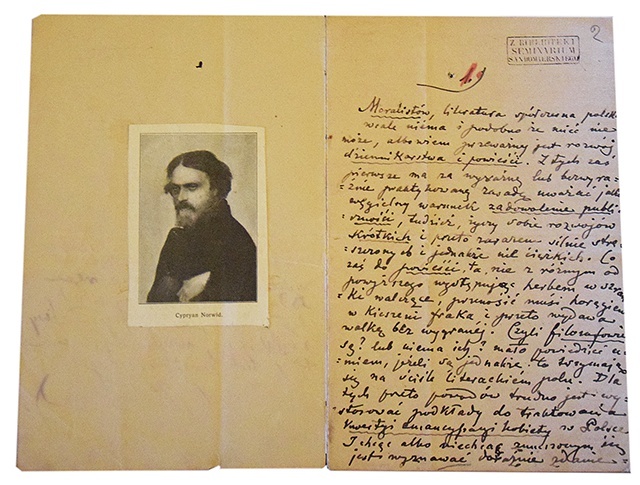 Cypryan Norwid.
Z BIBLIOTEKI
SEMINARIUM
SANDOMIERSKIEGO
2
1.
Moralistów, literatura spółczesna polska
wcale niema i podobno że mieć nie
może, albowiem przeważny jest rozwój
dziennikarstwa i powieści. Z tych zaś
pierwsze ma za wyraźną lub bezwyra=
=źnie praktykowaną zasadę uważać jako
węgielny warunek zadowolenie publi=
=czności, tudzież, życzy sobie rozwojów
krótkich i przeto zarazem silnie stre=
=szczonych i jednakże nie ciężkich. Co
zaś do powieści, ta, nie z różnym od
powyższego występując herbem w szran=
=ki walczące, przynosić musi
w kieszeni fraka i przeto wydawa
walkę bez wygranej. Czyli filozofowie
są? lub niema ich? mało powiedzieć u=
=miem, jeżeli są jednakże, to trzymają
się na ściśle literackiem polu. Dla
tych przeto powodów trudno jest wy=
=stosować podkłady do traktowania
kwestyi emancypacyi kobiety w Polsce
I chcąc albo niechcąc zmuszonym się
jest wyznawać zdanie